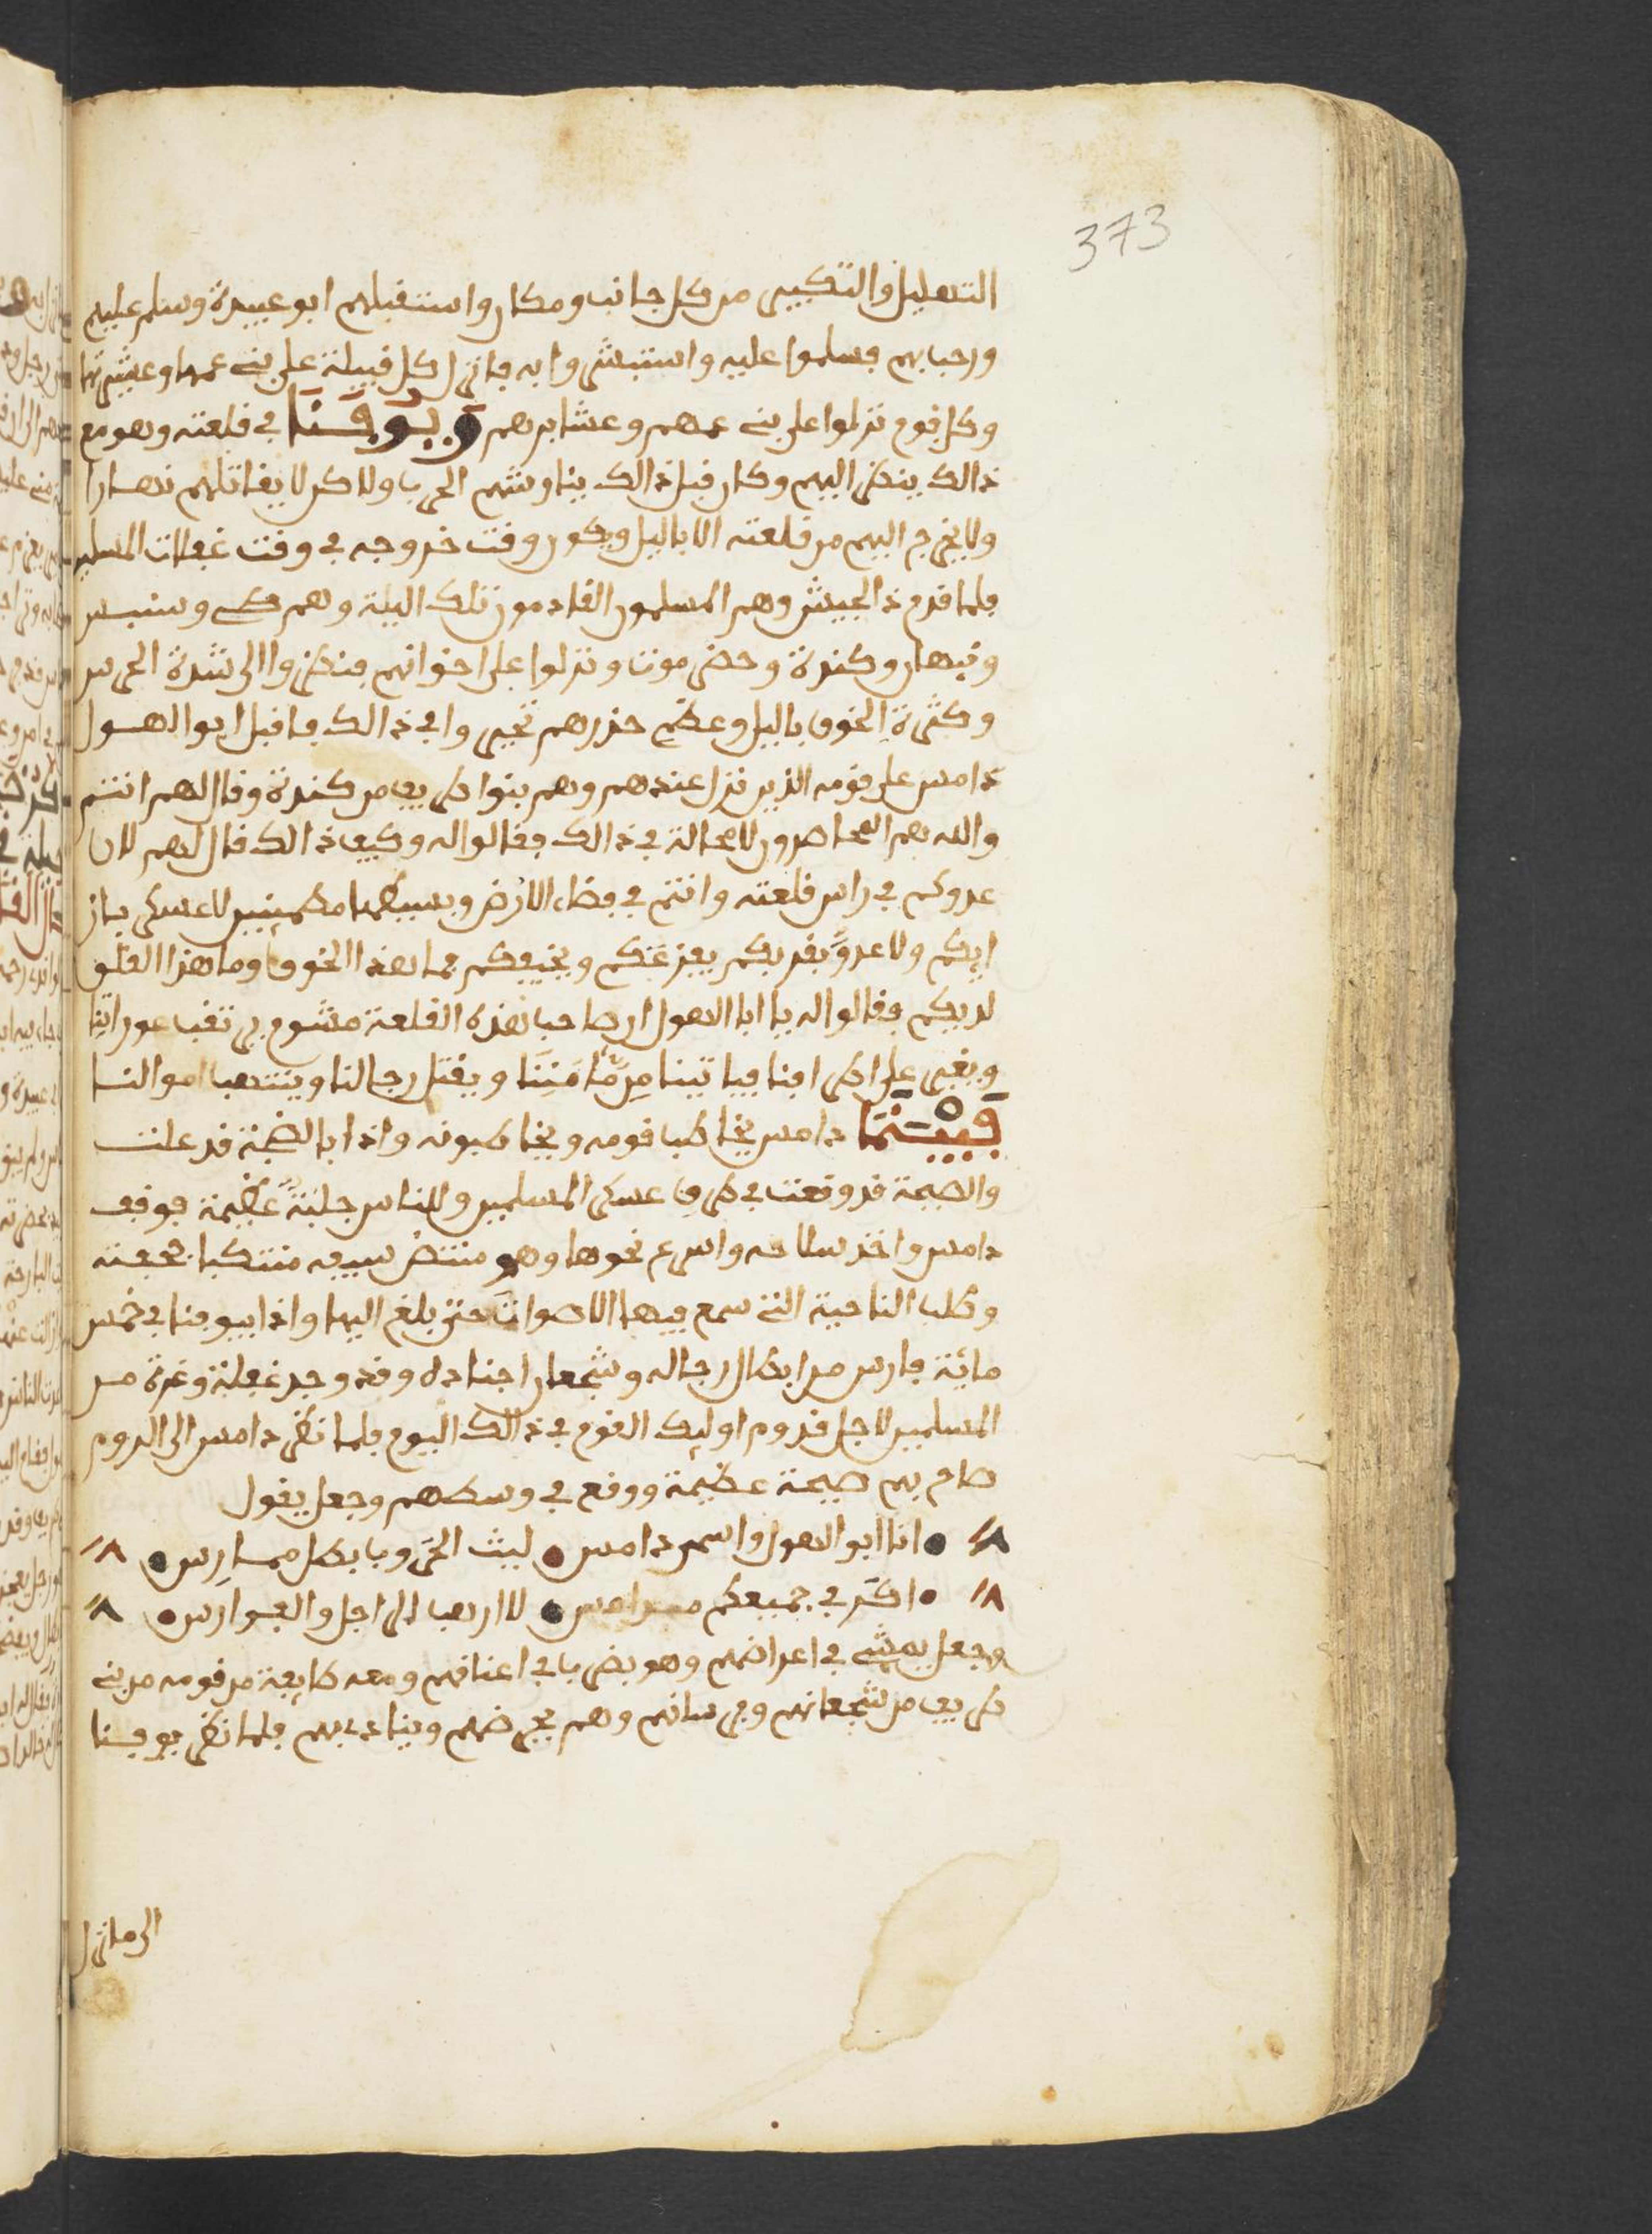 373
التهليل والتكبير من كل جانب ومكان واستقبلهم ابو عبيدة وسلم عليهم
ورحب بهم فسلموا عليه واستبشروا به فانزل كل قبيلة على بني عمها وعشيرتها
وكل قوم نزلوا على بني عمهم وعشايرهم ويوقنا في قلعته وهو مع
ذالك ينظر اليهم وكان قبل ذالك يناوشهم الحرب ولاكن لا يقاتلهم نهارا
ولا يخرج اليهم من قلعته الا باليل ويكون وقت خروجه في وقت غفلات المسلمين
فلما قدم ذا الجيش وهم المسلمون القادمون تلك اليلة وهم طي وسنبس
ونبهان وكندة وحضرموت ونزلوا على اخوانهم فنظروا الى شدة الحرس
وكثرة الخوف باليل وعظم حذرهم تحيروا في ذالك فاقبل ابو الهول
دامس على قومه الذين نزل عندهم وهم بنوا طريف من كندة وقال لهم انتم
والله هم المحاصرون لا محالة في ذالك فقالوا له وكيف ذالك قال لهم لان
عدوكم في راس قلعته وانتم في فضاء الارض وبسيطها مطمينين لا عسكر بازا
ايكم ولا عدوّ بقربكم يفزعكم ويخيفكم فما هذا الخوف وما هذا القلق
لديكم فقالوا له يا ابا الهول ان صاحب هذه القلعة مشوم يرتقب عوراتنا
ويغير على اطرافنا فياتينا من مّامننا ويقتل رجالنا وينتهب اموالنا
فبينما دامس يخاطب قومه ويخاطبونه واذا بالضجة قد علت
والصيحة قد وقعت في طرف عسكر المسلمين وللناس جلبة عظيمة فوقف
دامس واخذ سلاحه واسرع نحوها وهو منتض سيفه متنكبا بحجفته
وطلب الناحية التي سمع فيها الاصوات حتى بلغ اليها واذا بيوقنا في خمس
مائة فارس من ابطال رجاله وشجعان اجناده وقد وجد غفلة وغرة من
المسلمين لاجل قدوم اوليك القوم في ذالك اليوم فلما نظر دامس الى الروم
صاح بهم صيحة عظيمة ووقع في وسطهم وجعل يقول
انا ابو الهول واسمي دامس ليث الحروب بطل ممارس
اكر في جميعكم مداعس لا ارهب الراجل والفوارس
وجعل يمشي في اعراضهم وهو يضرب في اعناقهم ومعه طايفة من قومه من بني
طريف من شجعانهم وفرسانهم وهم يحرضهم وينادي بهم فلما نظر يوقنا
الى ما نزل